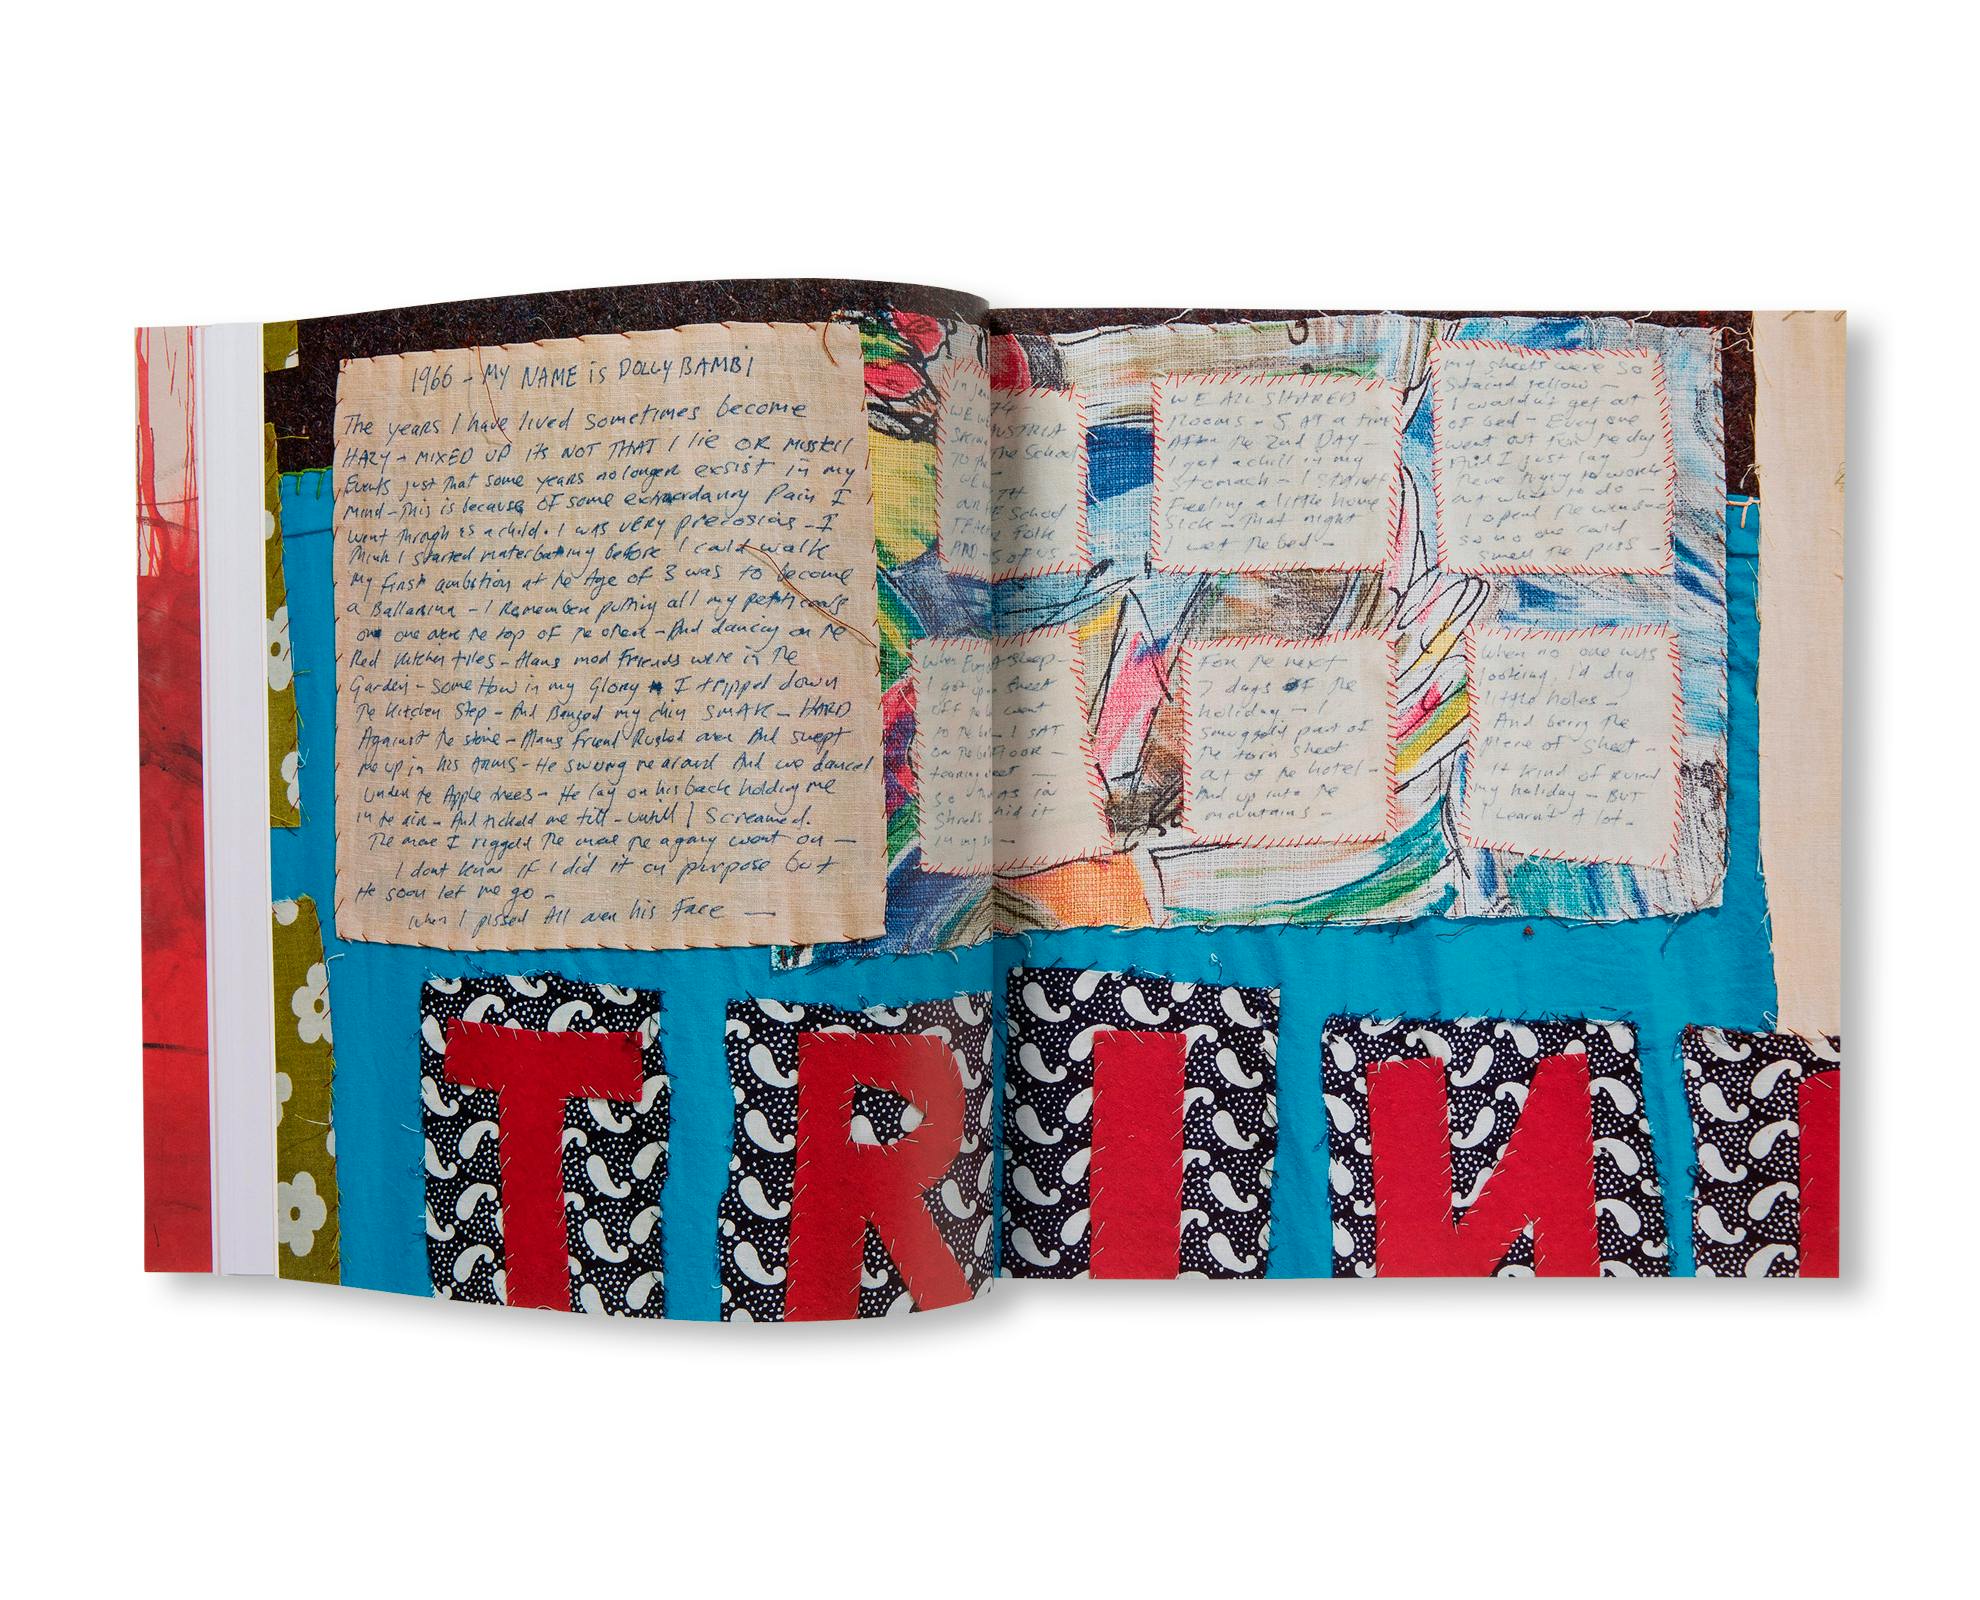 1966 - MY NAME is DOLLY BAMBI
The years I have lived sometimes become
HAZY - MIXED UP its NOT THAT I lie OR Misstell
Events just that some years no longer exsist in my
Mind - This is because of some extraordanry Pain I
went through as a child. I was VERY precosius - I
think I started materbating before I could walk
My first ambition at the Age of 3 was to become
a Ballarina - I Remember putting all my petticoats
on one over the top of the other - And dancing on the
Red Kitchen tiles - Mans mod Friends were in the
Garden - Some How in my Glory I tripped down
the Kitchen Step - And Banged my chin SMAK - HARD
Against the stone - Mans friend Rushed over And swept
me up in his Arms - He swung me around And we danced
under the Apple trees - He lay on his back holding me
in the air - And tickeld me till - untill I Screamed.
The more I riggeld the more the agany went on -
I dont know if I did it on purpose but
He soon let me go -
when I pissed All over his Face -
74
AUSTRIA
The School
TH
School
Folk
AND 5 OF US -
WE ALL SHARED
Rooms - 5 At a time
After the 2nd DAY -
I got a chill in my
Stomach - I
Feeling a little home
Sick - That night
I wet the bed -
my sheets were so
staind yellow -
I couldn't get out
of bed - Every one
went out for the day
And I just lay
there trying to work
out what to do -
I opend the window
so no one could
smell the piss -
When Every asleep -
I got up sheet
off the went
to the I SAT
on the FLOOR -
tearing sheet
So it was in
Shreds hid it
in my
For the next
7 days of the
holiday - I
smuggeld part of
the torn sheet
out of the hotel -
And up into the
mountains -
When no one was
looking, I'd dig
little holes -
And berry the
piece of sheet -
it kind of ruind
my holiday - BUT
I learnt A lot -
TRIN